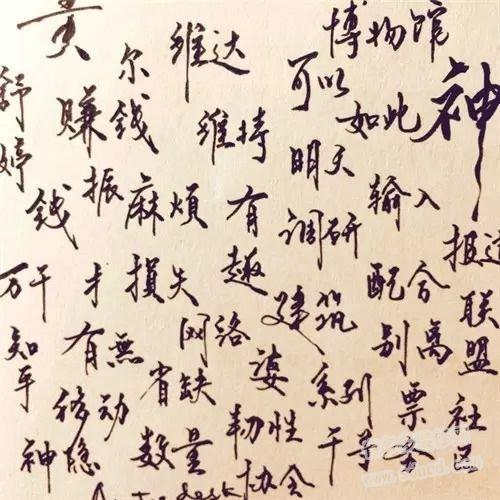 神
博物馆
可以
如此
明天
输入
调研
报道
维达
维持
有趣
配合
联盟
建筑
别离
社区
系列
票务
干事
尔
赚钱
振
麻烦
钱
损失
网络
婆
韧性
协会
省缺
数量
才
有無
移动
神隐
舒婷
万千
知乎
黄